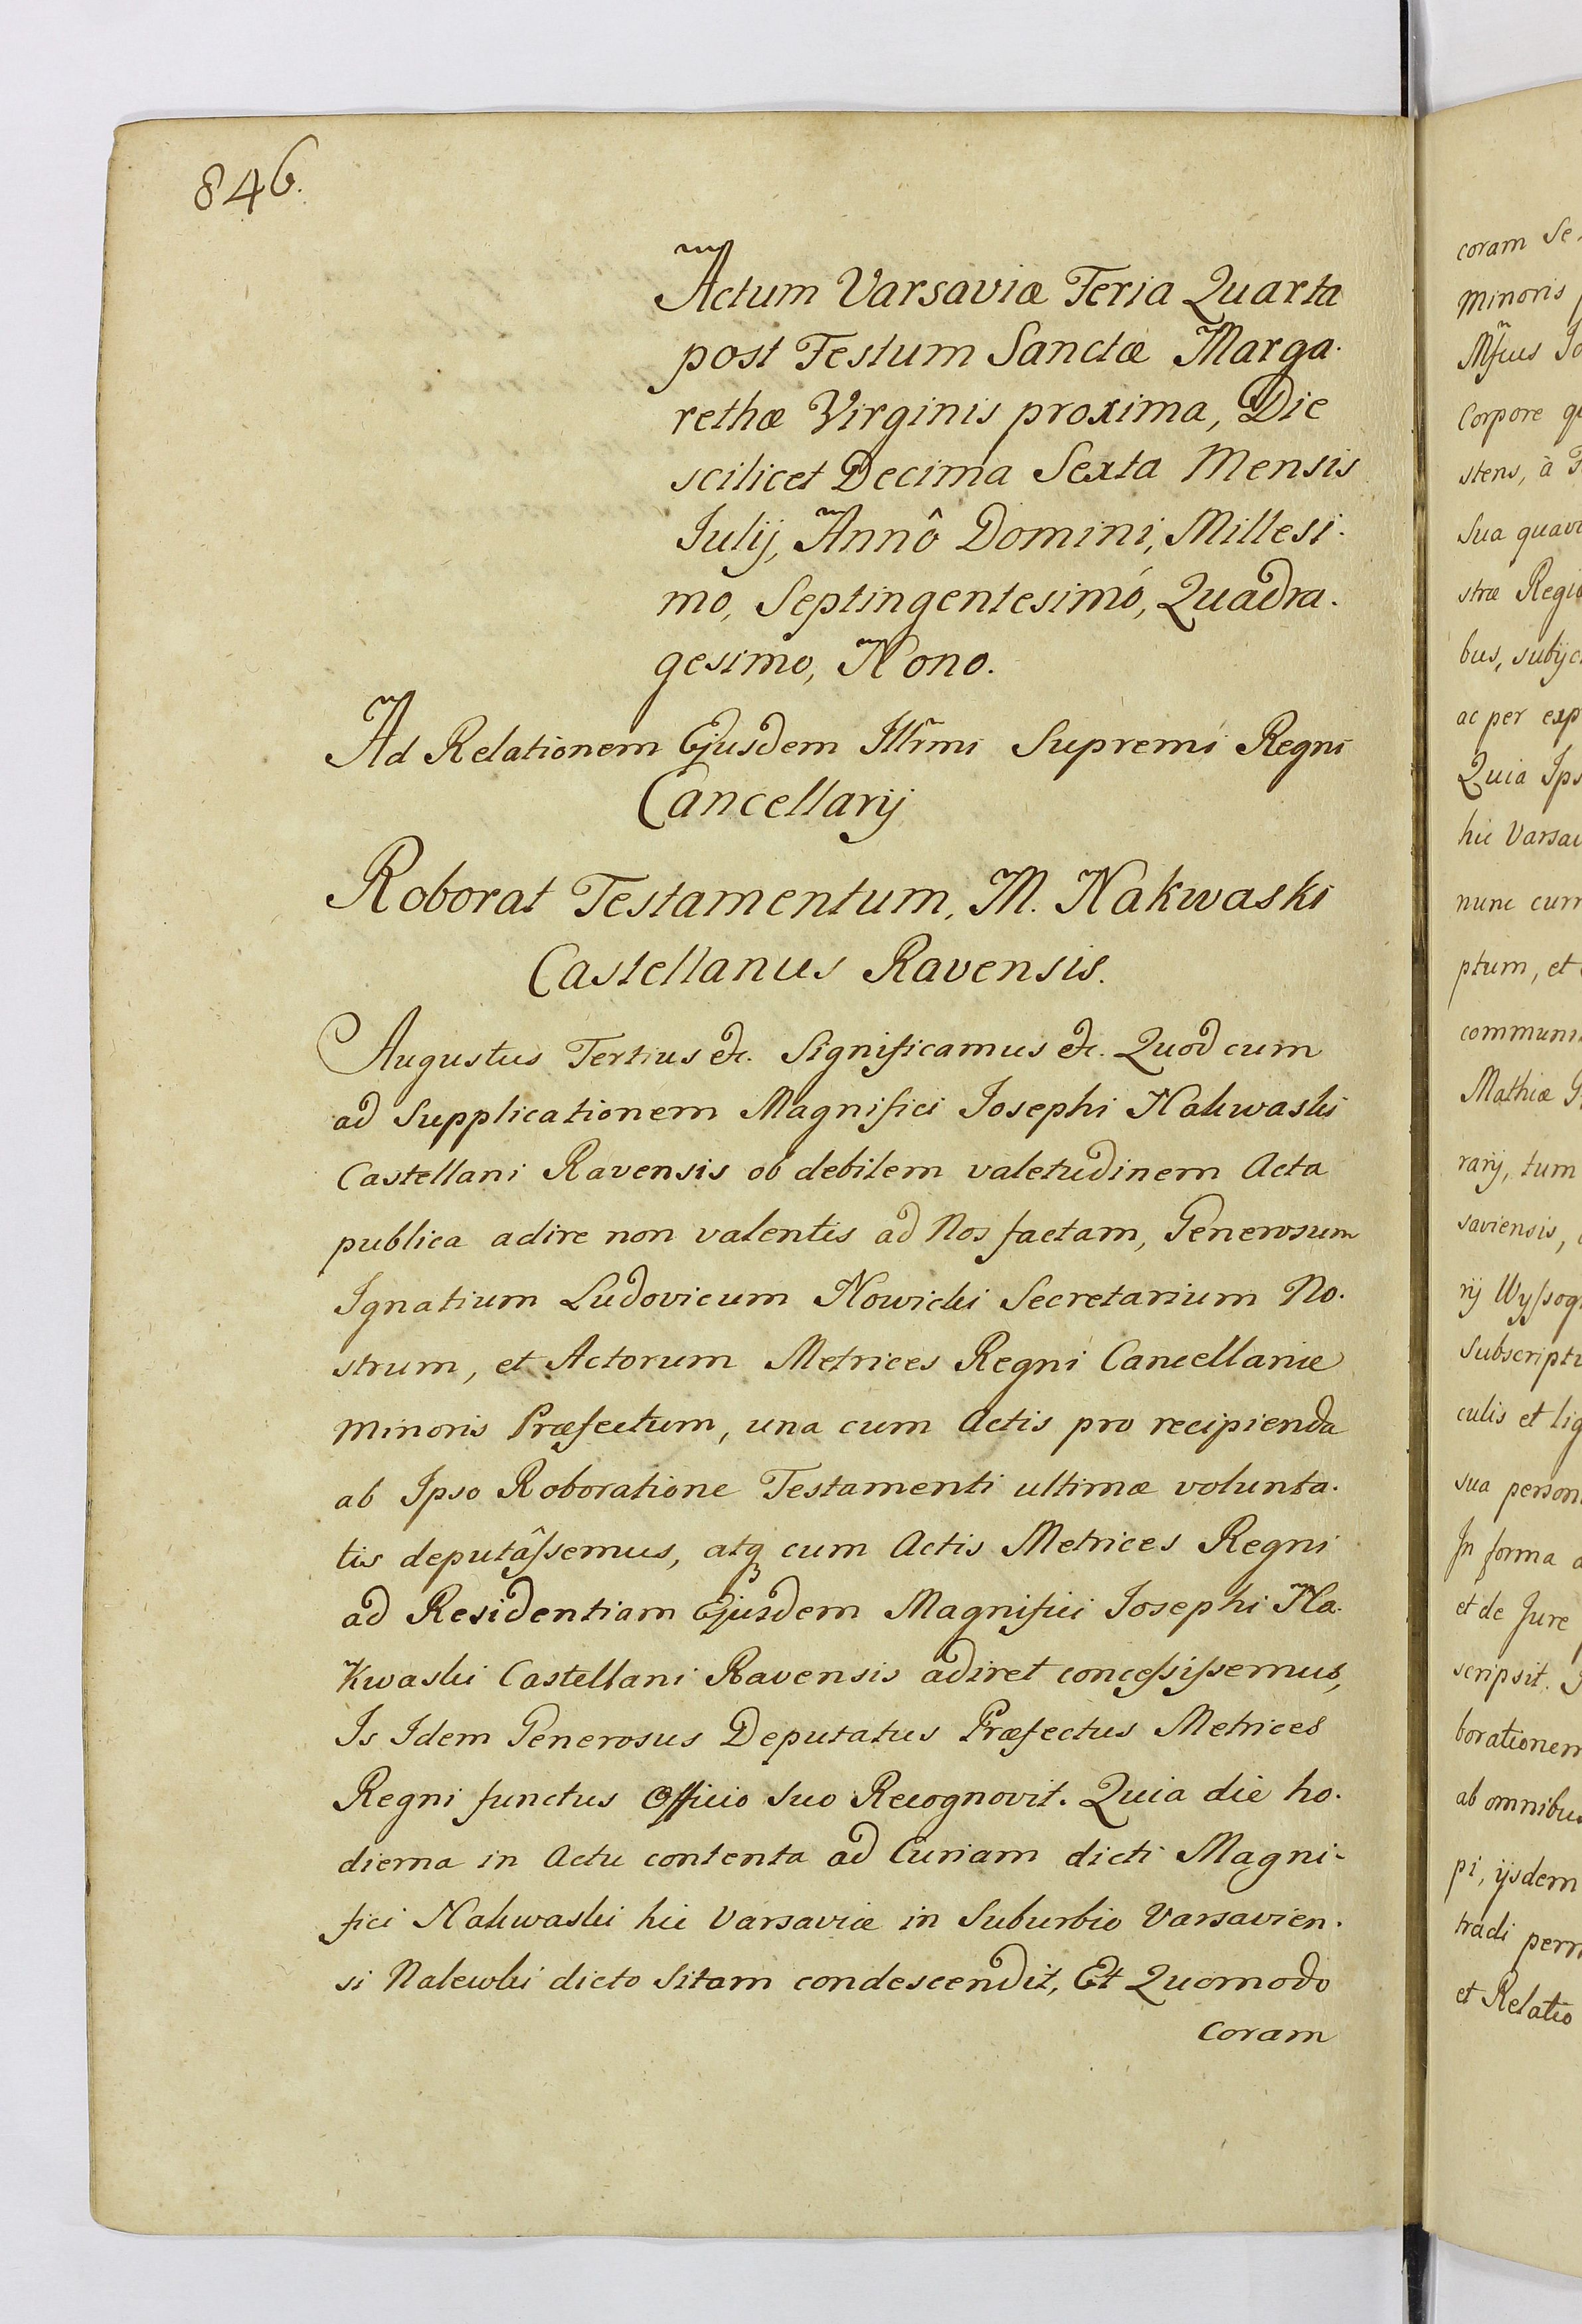 846.
Actum Varsaviæ Feria Quarta
post Festum Sanctæ Marga.
rethæ Virginis proxima, Die
scilicet Decima Sexta Mensis
Julij, Annô Domini, Millesi.
mo, Septingentesimó, Quadra.
gesimo, Nono.
Ad Relationem Ejusdem Illr̃mi Supremi Regni
Cancellarij
Roborat Testamentum, M. Nakwaski
Castellanus Ravensis.
Augustus Tertius etc. Significamus etc. Quod cum
ad Supplicationem Magnifici Josephi Nakwaski
Castellani Ravensis ob debilem valetudinem Acta
publica adire non valentis ad Nos factam, Generosum
Ignatium Ludovicum Nowicki Secretarium No.
strum, et Actorum Metrices Regni Cancellariæ
Minoris Præfectum, una cum Actis pro recipienda
ab Ipso Roboratione Testamenti ultimæ volunta.
tis deputâssemus, atq cum Actis Metrices Regni
ad Residentiam Ejusdem Magnifici Josephi Na.
Kwaski Castellani Ravensis adiret concessissemus,
Is Idem Generosus Deputatus Præfectus Metrices
Regni functus Officio Suo Recognovit. Quia die ho.
dierna in Actu contenta ad Curiam dicti Magni-
fici Nakwaski hic Varsaviæ in Suburbio Varsavien.
si Nalewki dicto Sitam condescendit, Et Quomodo
coram
coram Se
minoris
Mfcus Jo
Corpore
stens, à
Sua
stræ
bus,
ac per
Quia
hic
nunc
ptum, et
Mathiæ
rarij, tum
saviensis,
culis et
sua
In forma
et de Jure
scripsit.
ab
pi, ijsdem
tradi
et Relatio